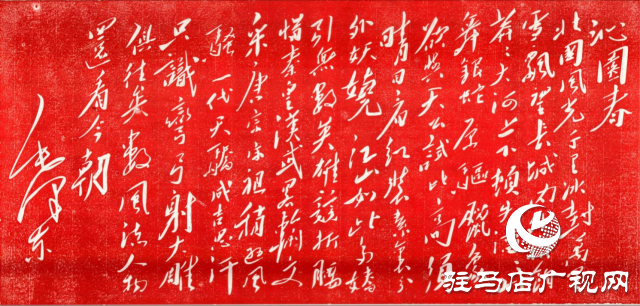 沁園春
北國風光千里冰封萬
雪飄望長城内
莽々大河上下頓失滔
舞銀蛇原驅蠟象
欲與天公試比高須
晴日看紅裝素裹分
外妖嬈江山如此多嬌
引無數英雄競折腰
惜秦皇漢武略輸文
采唐宗宋祖稍遜風
騷一代天驕成吉思汗
只識彎弓射大雕
俱往矣數風流人物
還看今朝
毛澤東
驻马店广视网